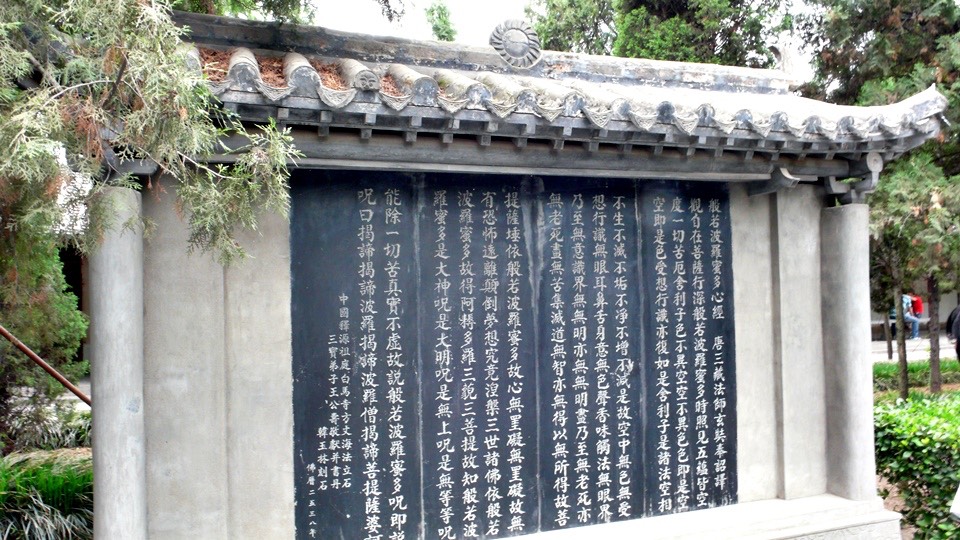 般若波羅蜜多心經 唐三藏法師玄奘奉詔譯
觀自在菩薩行深般若波羅蜜多時照見五蘊皆空
度一切苦厄舍利子色不異空空不異色色即是空
空即是色受想行識亦復如是舍利子是諸法空相
不生不滅不垢不净不增不減是故空中無色無受
想行識無眼耳鼻舌身意無色聲香味觸法無眼界
乃至無意識界無無明亦無無明盡乃至無老死亦
無老死盡無苦集滅道無智亦無得以無所得故菩
提薩埵依般若波羅蜜多故心無罣礙無罣礙故無
有恐怖遠離顛倒夢想究竟涅槃三世諸佛依般若
波羅蜜多故得阿耨多羅三藐三菩提故知般若波
羅蜜多是大神呪是大明呪是無上呪是無等等呪
能除一切苦真實不虛故説般若波羅蜜多呪即説
呪曰揭諦揭諦波羅揭諦波羅僧揭諦菩提薩婆訶
中國釋源祖庭白馬寺方丈海法立石
三寶弟子王公壽敬獻并書丹
韓玉林刻石
佛曆二五三八年